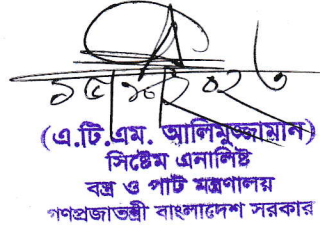 (এ.টি.এম. আলিমুজ্জামান)
সিষ্টেম এনালিষ্ট
বস্ত্র ও পাট মন্ত্রণালয়
গণপ্রজাতন্ত্রী বাংলাদেশ সরকার